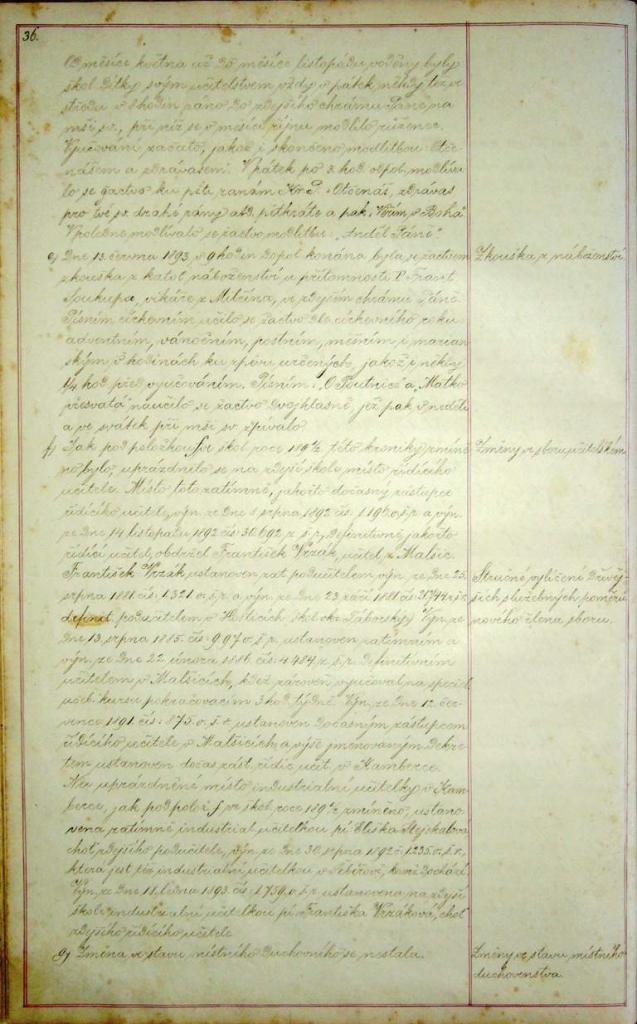 36.
Od měsíce května až do měsíce listopadu voděny byly
škol. dítky svým učitelstvem vždy v pátek někdy též ve
středu v 8 hodin ráno do zdejšího chrámu Páně na
mši sv., při níž se v měsíci říjnu modlilo růženec.
Vyučování začato, jakož i skončeno modlitbou: Otče-
nášem a zdrávasem. V pátek po 3. hod. odpol. modlíva-
lo se žactvo ku pěti ranám Kr. P. Otčenáš, zdrávas
pro tvé sv. drahé rány atd. pětkráte a pak „Věřím v Boha“.
V poledne modlívalo se žactvo modlitbu: „Anděl Páně“.
e) Dne 13. června 1893 v hodin dopol. konána byla se žactvem
zkouška z katol. náboženství u přítomnosti P. Frant.
Soukupa, vikáře z Milčína, ve zdejším chrámu Páně.
Písním církevním učilo se žactvo dle církevního roku
adventním, vánočním, postním, mešním i marian-
ským v hodinách ku zpěvu určených, jakož i někdy
1/4 hod. před vyučováním. Písním: „O Poutnice“ a „Matko
přesvatá“ naučilo se žactvo dvojhlasně, jež pak v neděli
a ve svátek při mši sv. zpívalo.
Zkouška z náboženství
f) Jak pod položkou f ve škol. roce 189½ této kroniky zmíně-
no bylo, uprázdnilo se na zdejší škole místo řídícího
učitele. Místo toto zatímně, jakožto dočasný zástupce
řídícího učitele, výn. ze dne 1. srpna 1892 čís. 1196 o. š. r. a výn.
ze dne 14. listopadu 1892 čís. 30.692 z. š. r. definitivně jakožto
řídící učitel, obdržel František Vrzák, učitel z Malšic.
Změny ve sboru učitelském
František Vrzák ustanoven zat. podučitelem výn. ze dne 25.
srpna 1881 čís. 1321 o. š. r. a výn. ze dne 23. září 1881 čís.
definit. podučitelem v Hošticích škol. okr. Táborský. Výn. ze
dne 13. srpna 1885 čís. 997 o. š. r. ustanoven zatímním a
výn. ze dne 22. února 1886 čís. 4484 z. š. r. definitivním
učitelem v Malšicích, kdež zároveň vyučoval na speciel.
učeb. kursu pokračovacím 3 hod. týdně. Výn. ze dne 12. čer-
vence 1891 čís. 875 o. š. r. ustanoven dočasným zástupcem
řídícího učitele v Malšicích, a výše jmenovaným dekre-
tem ustanoven dočas. zást. řídíc. učit. v Kamberce.
Stručné vylíčení dřívěj-
ších služebných poměrů
nového člena sboru.
Na uprázdněné místo industrialní učitelky v Kam-
berce, jak pod polož. f ve škol. roce 189½ zmíněno, ustano-
vena zatímně industrial. učitelkou pí. Eliška Stejskalová
choť zdejšího podučitele, výn. ze dne 30. srpna 1892 č. 1235 o. š. r.,
která jest též industrialní učitelkou v, kamž dochází.
Výn. ze dne 11. ledna 1893 čís. 1759 o. š. r. ustanovena na zdejší
škole industrialní učitelkou pí. Františka Vrzáková, choť
zdejšího řídícího učitele.
g) Změna ve stavu místního duchovního se nestala.
Změny ve stavu místního
duchovenstva.